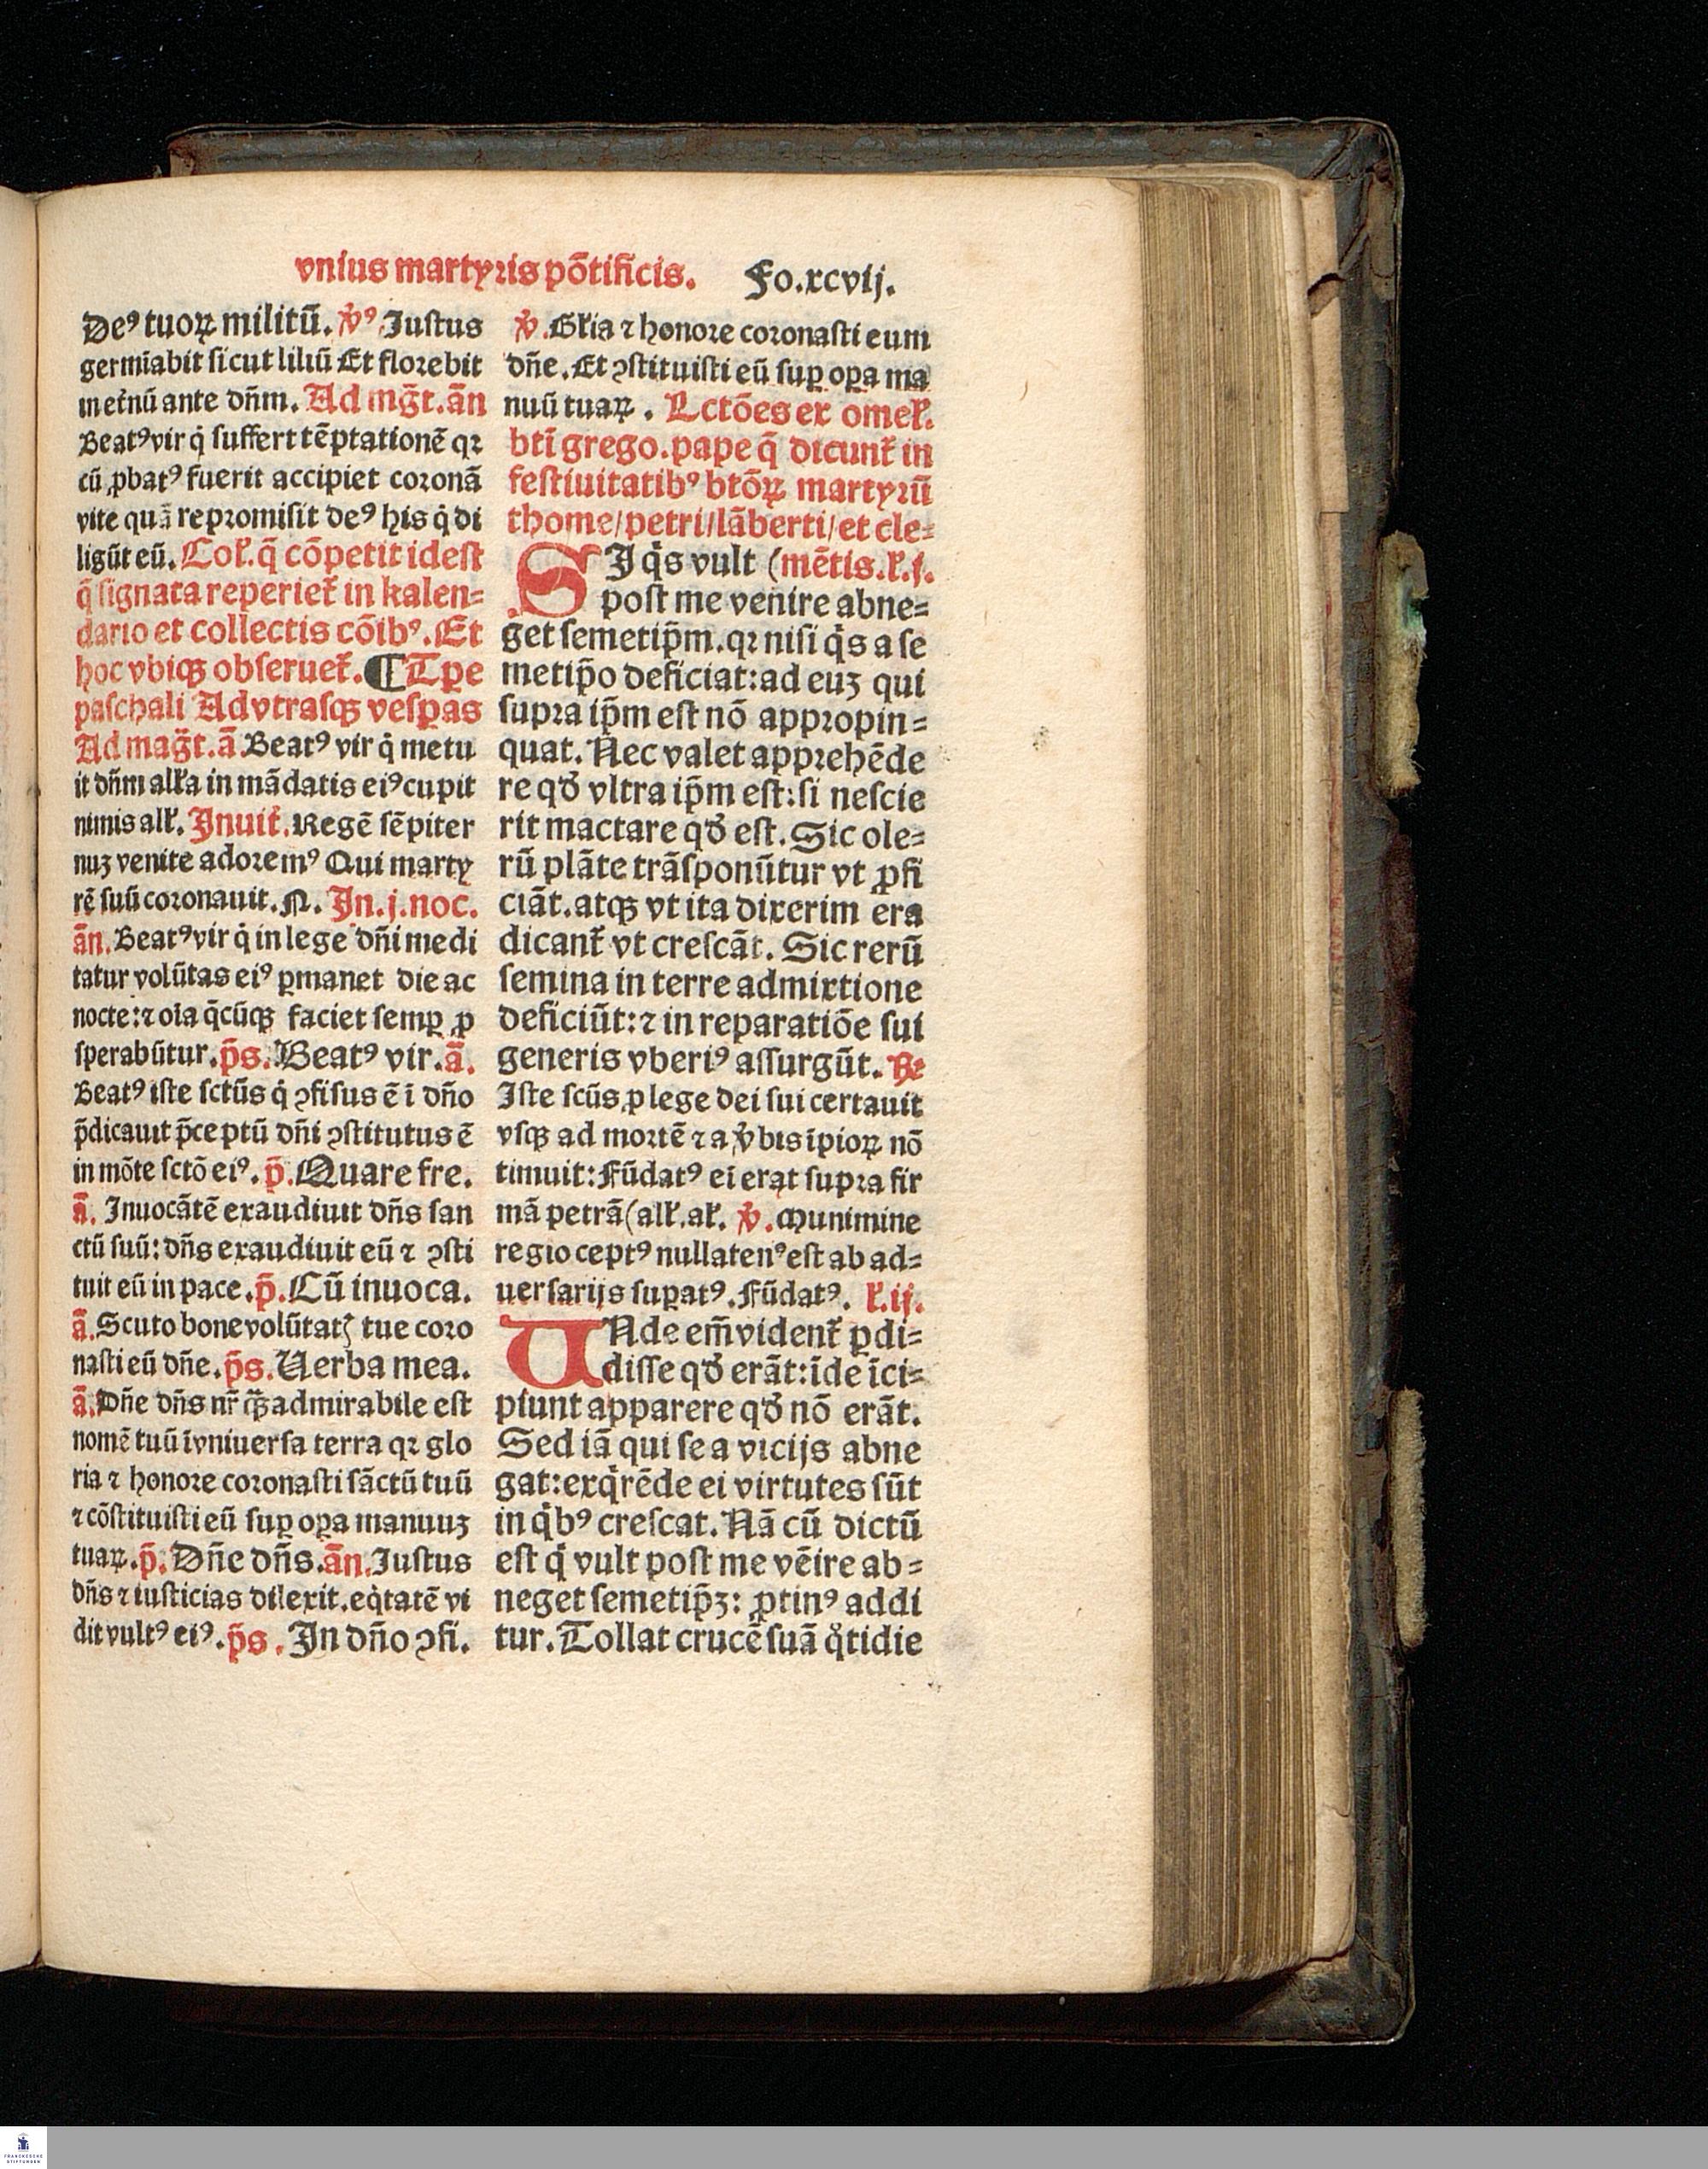 vnius martyris põtificis. Fo.xcvij.
Deꝰ tuoꝝ militũ. ℣ꝰ Juſtus
germĩabit ſicut liliũ Et florebit
in eẗnũ ante dñm. Ad mg̃t. ãn
Beatꝰ vir q̇ ſuffert tẽptationẽ qꝛ
cũ ꝓbatꝰ fuerit accipiet coronã
vite quã repromiſit deꝰ his q̇ di
ligũt eũ. Coƚ. q̃ cõpetit ideſt
q̃ ſignata reperieť in kalen⸗
dario et collectis cõibꝰ. Et
hoc vbiqꝫ obſerueť. ¶ Tꝑe
paſchali Ad vtraſqꝫ veſꝑas
Ad mag̃t. ã Beatꝰ vir q̇ metu
it dñm alƚa in mãdatis eiꝰ cupit
nimis alƚ. Jnuiť. Regẽ ſẽpiter
nuꝫ venite adoremꝰ Qui marty
rẽ ſuũ coronauit. N. Jn. j. noc.
ãn. Beatꝰ vir q̇ in lege dñi medi
tatur volũtas eiꝰ ꝑmanet die ac
nocte: ⁊ oĩa q̃cũqꝫ faciet ſemꝑ ꝓ
ſperabũtur. p̃s. Beatꝰ vir. ã.
Beatꝰ iſte ſctũs q̇ ꝯfiſus ẽ ĩ dño
p̃dicauit p̃ceptũ dñi ꝯſtitutus ẽ
in mõte ſctõ eiꝰ. p̃. Quare fre.
ã. Inuocãtẽ exaudiuit dñs ſan
ctũ ſuũ: dñs exaudiuit eũ ⁊ ꝯſti
tuit eũ in pace. p̃. Cũ inuoca.
ã. Scuto bone volũtatꝭ tue coro
naſti eũ dñe. p̃s. Verba mea.
ã. Dñe dñs nr̃ q̃ꝫ admirabile eſt
nomẽ tuũ ĩ vniuerſa terra qꝛ glo
ria ⁊ honore coronaſti ſãctũ tuũ
⁊ cõſtituiſti eũ ſuꝑ oꝑa manuuꝫ
tuaꝝ. p̃. Dñe dñs. ãn. Juſtus
dñs ⁊ iuſticias dilexit. eq̇tatẽ vi
dit vultꝰ eiꝰ. p̃s. Jn dño ꝯfi.
℣. Gƚia ⁊ honore coronaſti eum
dñe. Et ꝯſtituiſti eũ ſuꝑ oꝑa ma
nuũ tuaꝝ. Lctões ex omeƚ.
btĩ grego. pape q̃ dicunť in
feſtiuitatibꝰ btõꝝ martyrũ
thome/petri/lãberti/et cle⸗
SJ q̇s vult (mẽtis. ƚ. j.
poſt me venire abne⸗
get ſemetip̃m. qꝛ niſi q̇s a ſe
metip̃o deficiat: ad euꝫ qui
ſupra ip̃m eſt nõ appropin⸗
quat. Nec valet apprehẽde
re qď vltra ip̃m eſt: ſi neſcie
rit mactare qď eſt. Sic ole⸗
rũ plãte trãſponũtur vt ꝓfi
ciãt. atqꝫ vt ita dixerim era
dicanť vt creſcãt. Sic rerũ
ſemina in terre admixtione
deficiũt: ⁊ in reparatiõe ſui
generis vberiꝰ aſſurgũt. ℞
Iſte ſcũs ꝓ lege dei ſui certauit
vſqꝫ ad mortẽ ⁊ a v̓bis ĩpioꝝ nõ
timuit: Fũdatꝰ eĩ erat ſupra fir
mã petrã (alƚ. aƚ. ℣. Munimine
regio ceptꝰ nullatenꝰ eſt ab ad⸗
uerſarijs ſuꝑatꝰ. Fũdatꝰ. ƚ. ij.
VNde em̃ videnť ꝑdi⸗
diſſe qď erãt: ĩde ĩci⸗
piunt apparere qď nõ erãt.
Sed iã qui ſe a vicijs abne
gat: exq̇rẽde ei virtutes ſũt
in q̇bꝰ creſcat. Nã cũ dictũ
eſt q̇ vult poſt me vẽire ab⸗
neget ſemetip̃ꝫ: ꝓtinꝰ addi
tur. Tollat crucẽ ſuã q̊tidie
FRANCKESCHE
STIFTUNGEN